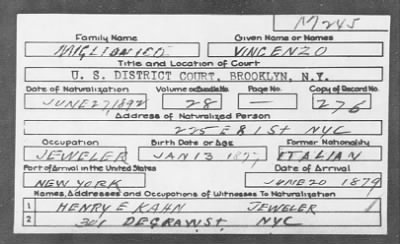 M245
Family Name Given Name or Names
MIGLIONICO VINCENZO
Title and Location of Court
U. S. DISTRICT COURT, BROOKLYN, N.Y.
Date of Naturalization Volume or Bundle No. Page No. Copy of Record No.
JUNE 27, 1892 28 — 276
Address of Naturalized Person
225 E 81 ST NYC
Occupation Birth Date or Age Former Nationality
JEWELER JAN 13 ITALIAN
Port of Arrival in the United States Date of Arrival
NEW YORK JUNE 20 1879
Names, Addresses and Occupations of Witnesses To Naturalization
1 HENRY E KAHN JEWELER
2 301 DEGRAW ST NYC